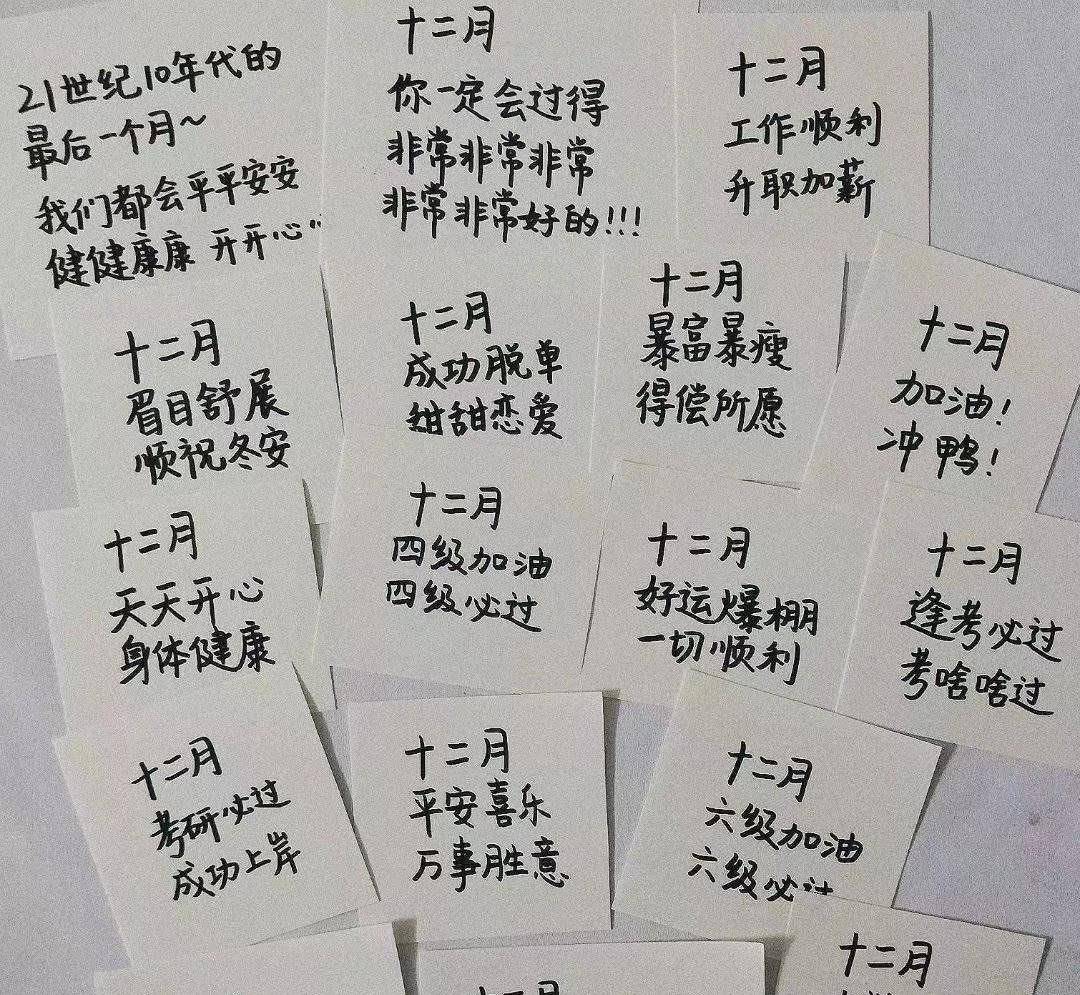 21世纪10年代的
最后一个月~
我们都会平平安安
健健康康 开开心
十二月
你一定会过得
非常非常非常
非常非常好的!!!
十二月
工作顺利
升职加薪
十二月
眉目舒展
顺祝冬安
十二月
成功脱单
甜甜恋爱
十二月
暴富暴瘦
得偿所愿
十二月
加油!
冲鸭!
十二月
天天开心
身体健康
十二月
四级加油
四级必过
十二月
好运爆棚
一切顺利
十二月
逢考必过
考啥啥过
十二月
考研必过
成功上岸
十二月
平安喜乐
万事胜意
十二月
六级加油
六级必过
十二月
十二月